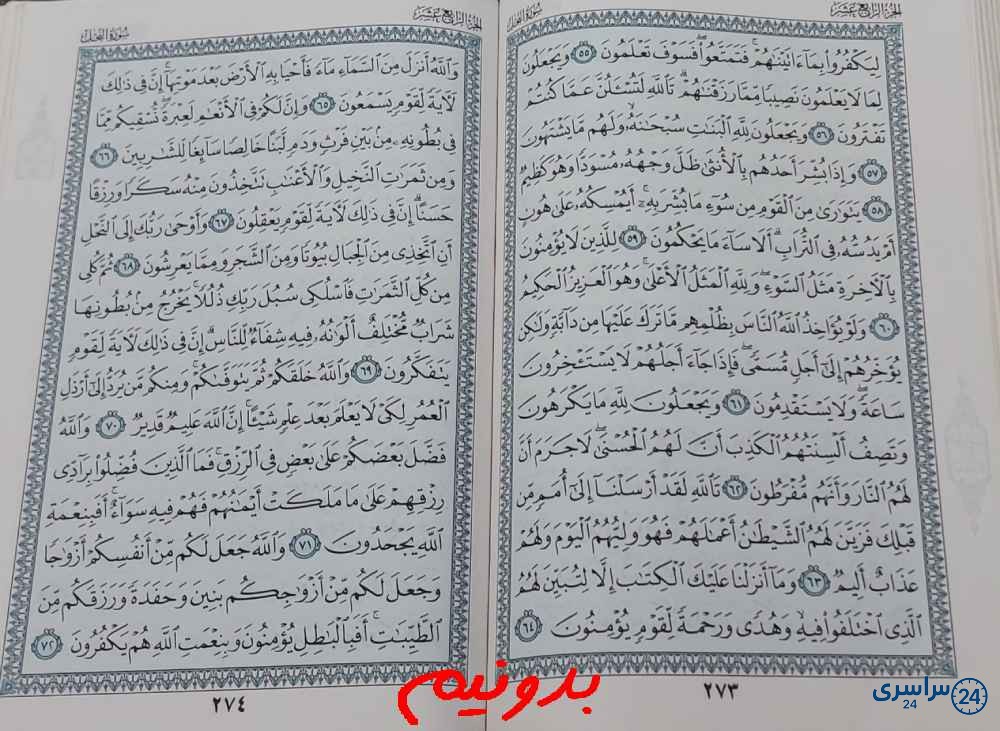 الجزء الرابع عشر
سورة النحل
لِيَكْفُرُوا۟ بِمَآ ءَاتَيْنَٰهُمْ ۚ فَتَمَتَّعُوا۟ ۖ فَسَوْفَ تَعْلَمُونَ ٥٥ وَيَجْعَلُونَ
لِمَا لَا يَعْلَمُونَ نَصِيبًا مِّمَّا رَزَقْنَٰهُمْ ۗ تَٱللَّهِ لَتُسْـَٔلُنَّ عَمَّا كُنتُمْ
تَفْتَرُونَ ٥٦ وَيَجْعَلُونَ لِلَّهِ ٱلْبَنَٰتِ سُبْحَٰنَهُۥ ۙ وَلَهُم مَّا يَشْتَهُونَ
٥٧ وَإِذَا بُشِّرَ أَحَدُهُم بِٱلْأُنثَىٰ ظَلَّ وَجْهُهُۥ مُسْوَدًّا وَهُوَ كَظِيمٌ
٥٨ يَتَوَٰرَىٰ مِنَ ٱلْقَوْمِ مِن سُوٓءِ مَا بُشِّرَ بِهِۦٓ ۚ أَيُمْسِكُهُۥ عَلَىٰ هُونٍ
أَمْ يَدُسُّهُۥ فِى ٱلتُّرَابِ ۗ أَلَا سَآءَ مَا يَحْكُمُونَ ٥٩ لِلَّذِينَ لَا يُؤْمِنُونَ
بِٱلْـَٔاخِرَةِ مَثَلُ ٱلسَّوْءِ ۖ وَلِلَّهِ ٱلْمَثَلُ ٱلْأَعْلَىٰ ۚ وَهُوَ ٱلْعَزِيزُ ٱلْحَكِيمُ
٦٠ وَلَوْ يُؤَاخِذُ ٱللَّهُ ٱلنَّاسَ بِظُلْمِهِم مَّا تَرَكَ عَلَيْهَا مِن دَآبَّةٍ وَلَٰكِن
يُؤَخِّرُهُمْ إِلَىٰٓ أَجَلٍ مُّسَمًّى ۖ فَإِذَا جَآءَ أَجَلُهُمْ لَا يَسْتَـْٔخِرُونَ
سَاعَةً ۖ وَلَا يَسْتَقْدِمُونَ ٦١ وَيَجْعَلُونَ لِلَّهِ مَا يَكْرَهُونَ
وَتَصِفُ أَلْسِنَتُهُمُ ٱلْكَذِبَ أَنَّ لَهُمُ ٱلْحُسْنَىٰ ۖ لَا جَرَمَ أَنَّ
لَهُمُ ٱلنَّارَ وَأَنَّهُم مُّفْرَطُونَ ٦٢ تَٱللَّهِ لَقَدْ أَرْسَلْنَآ إِلَىٰٓ أُمَمٍ مِّن
قَبْلِكَ فَزَيَّنَ لَهُمُ ٱلشَّيْطَٰنُ أَعْمَٰلَهُمْ فَهُوَ وَلِيُّهُمُ ٱلْيَوْمَ وَلَهُمْ
عَذَابٌ أَلِيمٌ ٦٣ وَمَآ أَنزَلْنَا عَلَيْكَ ٱلْكِتَٰبَ إِلَّا لِتُبَيِّنَ لَهُمُ
ٱلَّذِى ٱخْتَلَفُوا۟ فِيهِ ۙ وَهُدًى وَرَحْمَةً لِّقَوْمٍ يُؤْمِنُونَ ٦٤
٢٧٣
الجزء الرابع عشر
سورة النحل
وَٱللَّهُ أَنزَلَ مِنَ ٱلسَّمَآءِ مَآءً فَأَحْيَا بِهِ ٱلْأَرْضَ بَعْدَ مَوْتِهَآ ۚ إِنَّ فِى ذَٰلِكَ
لَـَٔايَةً لِّقَوْمٍ يَسْمَعُونَ ٦٥ وَإِنَّ لَكُمْ فِى ٱلْأَنْعَٰمِ لَعِبْرَةً ۖ نُّسْقِيكُم مِّمَّا
فِى بُطُونِهِۦ مِنۢ بَيْنِ فَرْثٍ وَدَمٍ لَّبَنًا خَالِصًا سَآئِغًا لِّلشَّٰرِبِينَ ٦٦
وَمِن ثَمَرَٰتِ ٱلنَّخِيلِ وَٱلْأَعْنَٰبِ تَتَّخِذُونَ مِنْهُ سَكَرًا وَرِزْقًا
حَسَنًا ۗ إِنَّ فِى ذَٰلِكَ لَـَٔايَةً لِّقَوْمٍ يَعْقِلُونَ ٦٧ وَأَوْحَىٰ رَبُّكَ إِلَى ٱلنَّحْلِ
أَنِ ٱتَّخِذِى مِنَ ٱلْجِبَالِ بُيُوتًا وَمِنَ ٱلشَّجَرِ وَمِمَّا يَعْرِشُونَ ٦٨ ثُمَّ كُلِى
مِن كُلِّ ٱلثَّمَرَٰتِ فَٱسْلُكِى سُبُلَ رَبِّكِ ذُلُلًا ۚ يَخْرُجُ مِنۢ بُطُونِهَا
شَرَابٌ مُّخْتَلِفٌ أَلْوَٰنُهُۥ فِيهِ شِفَآءٌ لِّلنَّاسِ ۗ إِنَّ فِى ذَٰلِكَ لَـَٔايَةً لِّقَوْمٍ
يَتَفَكَّرُونَ ٦٩ وَٱللَّهُ خَلَقَكُمْ ثُمَّ يَتَوَفَّىٰكُمْ ۚ وَمِنكُم مَّن يُرَدُّ إِلَىٰٓ أَرْذَلِ
ٱلْعُمُرِ لِكَىْ لَا يَعْلَمَ بَعْدَ عِلْمٍ شَيْـًٔا ۚ إِنَّ ٱللَّهَ عَلِيمٌ قَدِيرٌ ٧٠ وَٱللَّهُ
فَضَّلَ بَعْضَكُمْ عَلَىٰ بَعْضٍ فِى ٱلرِّزْقِ ۚ فَمَا ٱلَّذِينَ فُضِّلُوا۟ بِرَآدِّى
رِزْقِهِمْ عَلَىٰ مَا مَلَكَتْ أَيْمَٰنُهُمْ فَهُمْ فِيهِ سَوَآءٌ ۚ أَفَبِنِعْمَةِ
ٱللَّهِ يَجْحَدُونَ ٧١ وَٱللَّهُ جَعَلَ لَكُم مِّنْ أَنفُسِكُمْ أَزْوَٰجًا
وَجَعَلَ لَكُم مِّنْ أَزْوَٰجِكُم بَنِينَ وَحَفَدَةً وَرَزَقَكُم مِّنَ
ٱلطَّيِّبَٰتِ ۚ أَفَبِٱلْبَٰطِلِ يُؤْمِنُونَ وَبِنِعْمَتِ ٱللَّهِ هُمْ يَكْفُرُونَ ٧٢
٢٧٤
بدونیم
سراسری 24
24